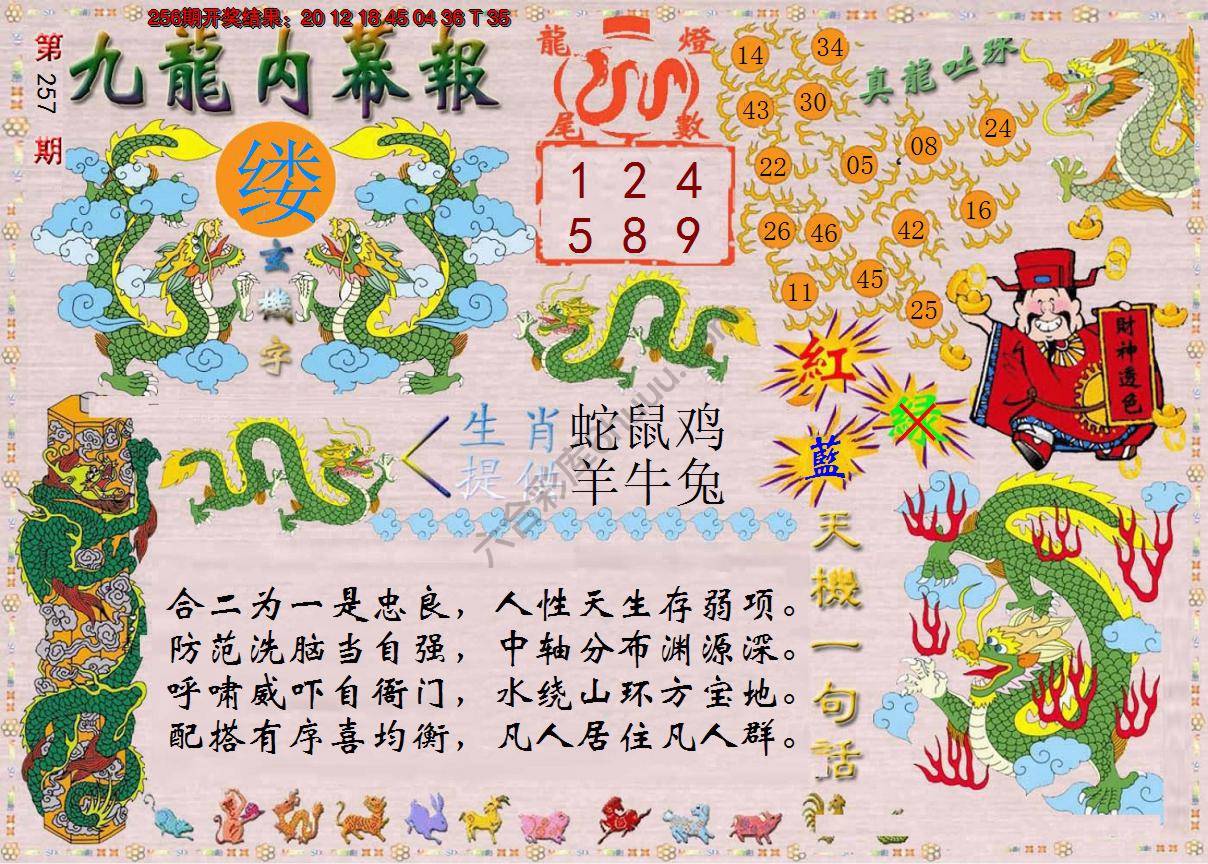 256期开奖结果：20 12 18 45 04 36 T 35
第257期
九龍内幕報
缕
玄機字
龍燈
尾數
1 2 4
5 8 9
真龍吐珠
14 34
43 30
22 05 08 24
26 46 42 16
11 45 25
財神透色
紅
綠
藍
生肖 蛇鼠鸡
提供 羊牛兔
天機一句話
合二为一是忠良，人性天生存弱项。
防范洗脑当自强，中轴分布渊源深。
呼啸威吓自衙门，水绕山环方宝地。
配搭有序喜均衡，凡人居住凡人群。